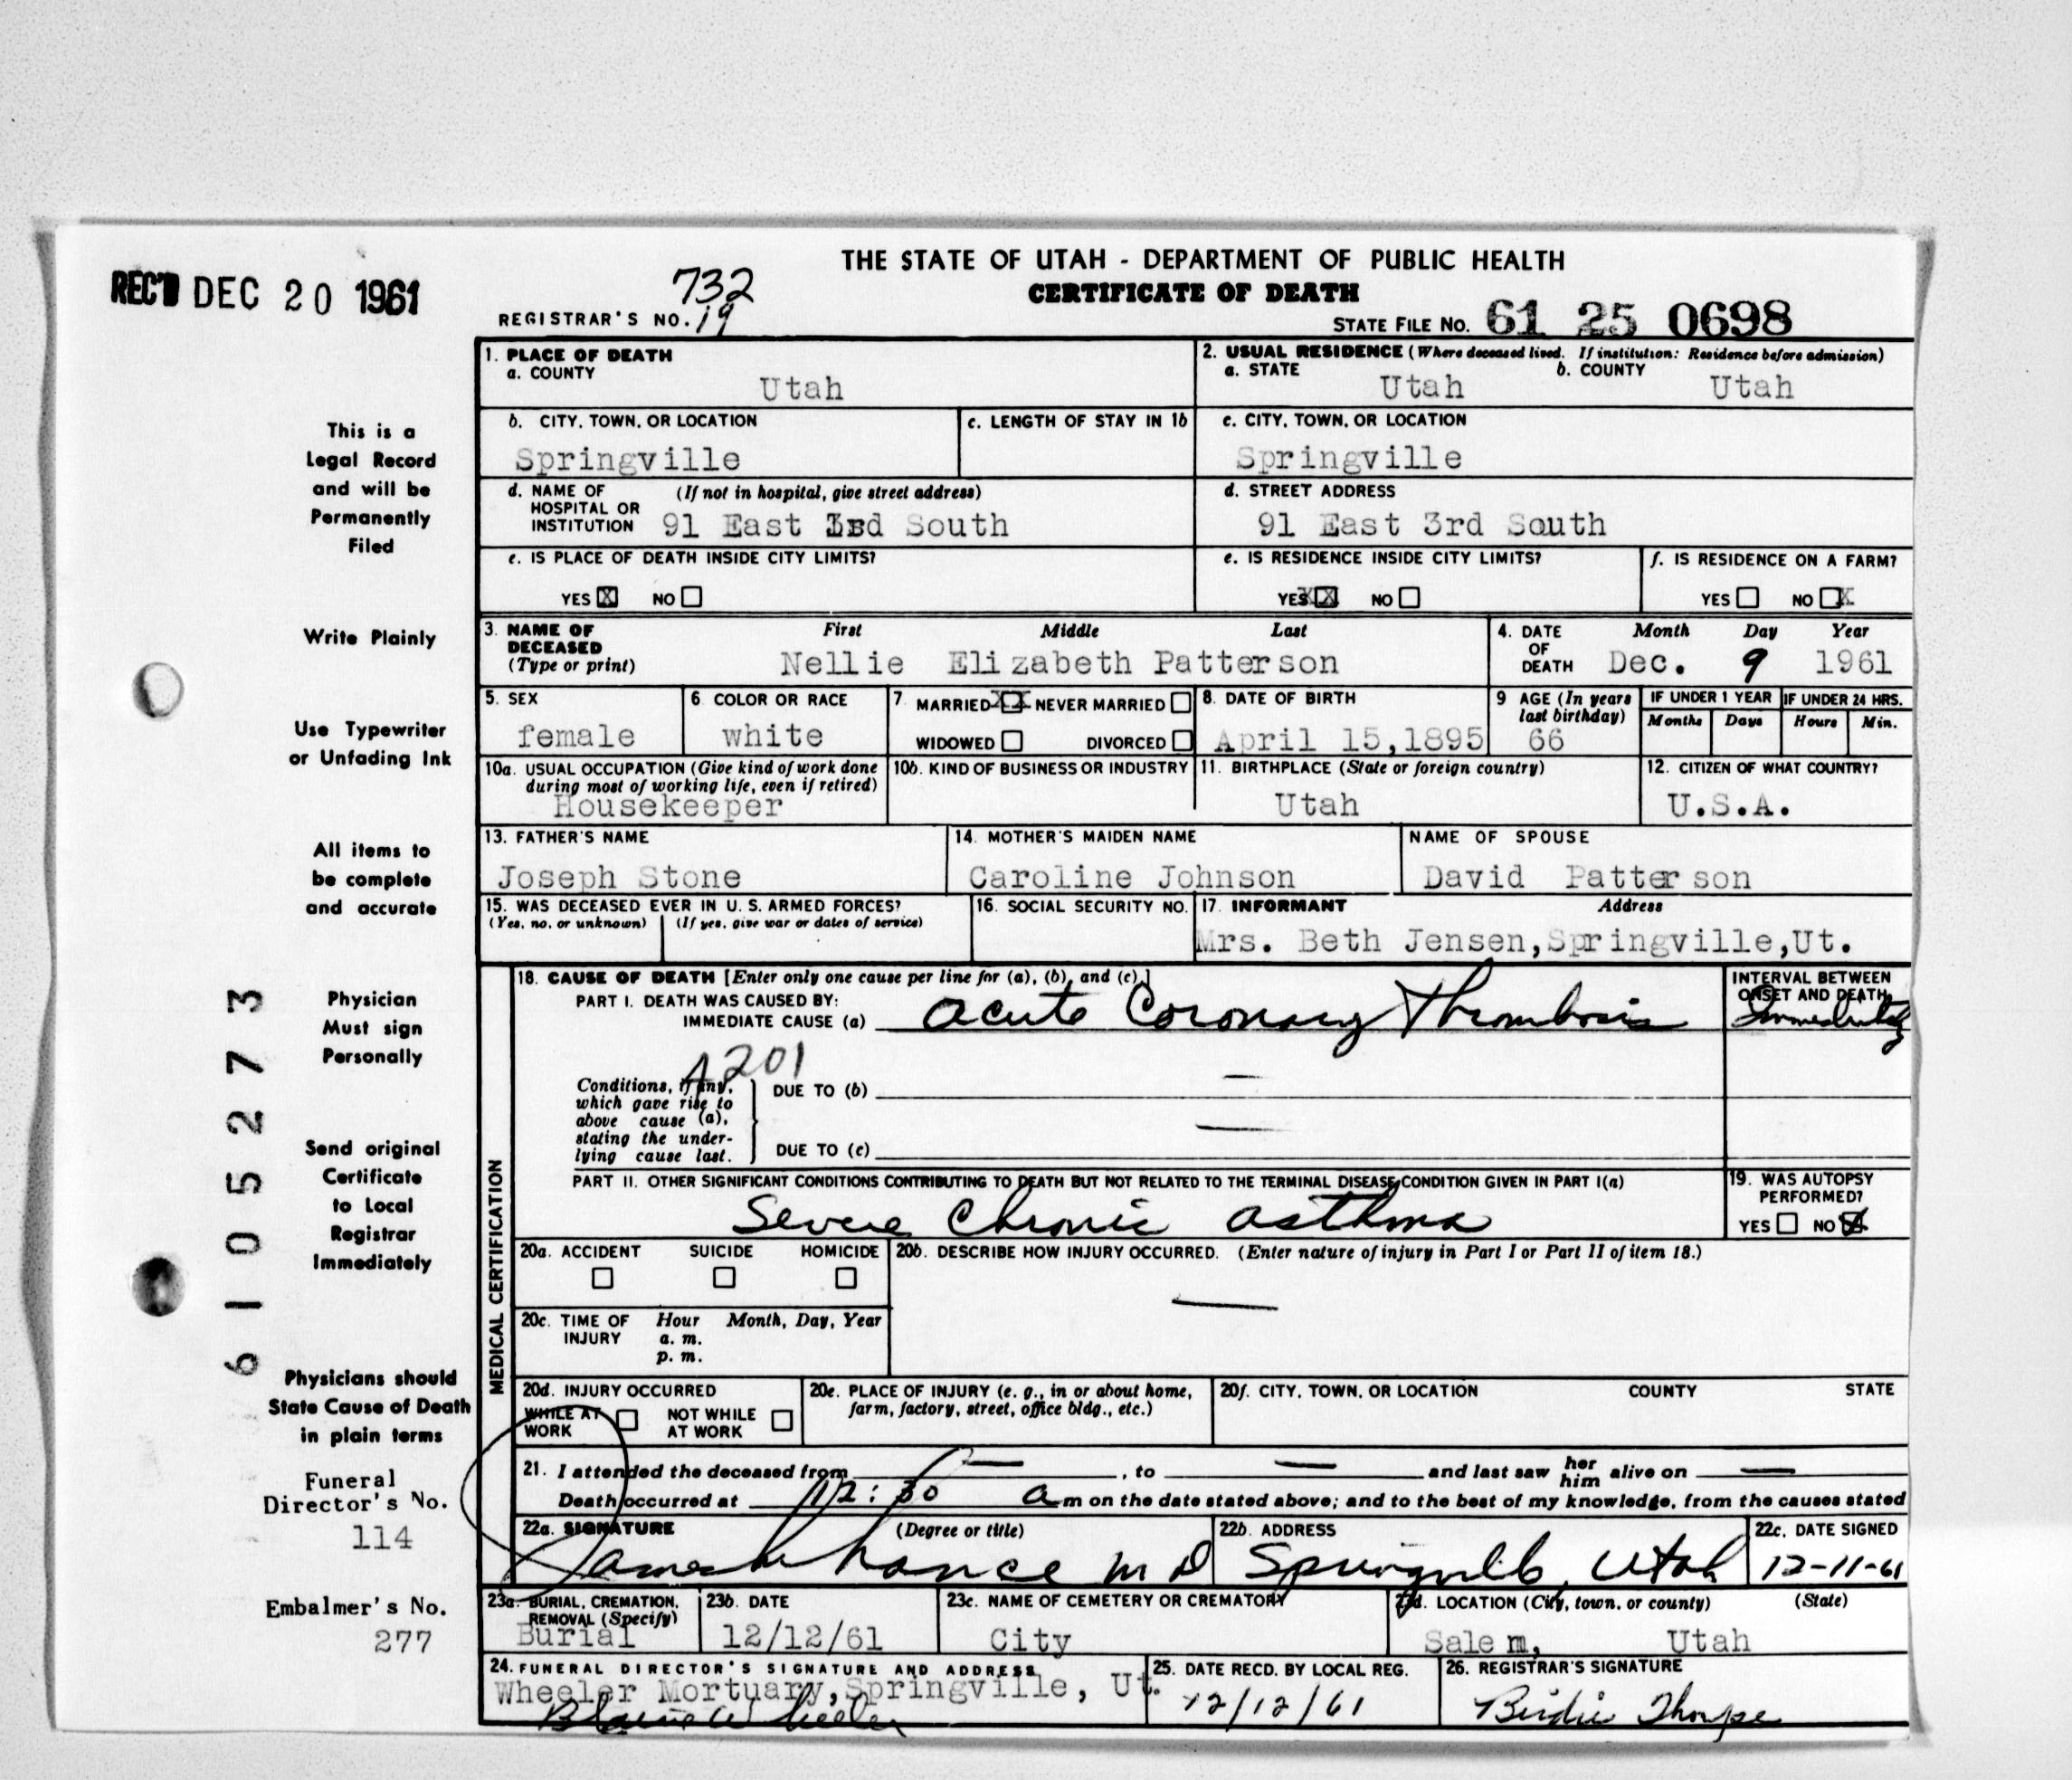 THE STATE OF UTAH - DEPARTMENT OF PUBLIC HEALTH
CERTIFICATE OF DEATH
REC'D DEC 20 1961
732
REGISTRAR'S NO. 19
STATE FILE NO. 61 25 0698
1. PLACE OF DEATH
a. COUNTY
Utah
2. USUAL RESIDENCE (Where deceased lived. If institution: Residence before admission)
a. STATE Utah b. COUNTY Utah
b. CITY, TOWN, OR LOCATION
Springville
c. LENGTH OF STAY IN 1b
c. CITY, TOWN, OR LOCATION
Springville
d. NAME OF HOSPITAL OR INSTITUTION (If not in hospital, give street address)
91 East 3rd South
d. STREET ADDRESS
91 East 3rd South
e. IS PLACE OF DEATH INSIDE CITY LIMITS?
YES X NO
e. IS RESIDENCE INSIDE CITY LIMITS?
YES XX NO
f. IS RESIDENCE ON A FARM?
YES NO X
3. NAME OF DECEASED (Type or print)
First Middle Last
Nellie Elizabeth Patterson
4. DATE OF DEATH
Month Day Year
Dec. 9 1961
5. SEX
female
6. COLOR OR RACE
white
7. MARRIED XX NEVER MARRIED
WIDOWED DIVORCED
8. DATE OF BIRTH
April 15,1895
9 AGE (In years last birthday)
66
IF UNDER 1 YEAR
Months Days
IF UNDER 24 HRS.
Hours Min.
10a. USUAL OCCUPATION (Give kind of work done during most of working life, even if retired)
Housekeeper
10b. KIND OF BUSINESS OR INDUSTRY
11. BIRTHPLACE (State or foreign country)
Utah
12. CITIZEN OF WHAT COUNTRY?
U.S.A.
13. FATHER'S NAME
Joseph Stone
14. MOTHER'S MAIDEN NAME
Caroline Johnson
NAME OF SPOUSE
David Patterson
15. WAS DECEASED EVER IN U. S. ARMED FORCES?
(Yes, no, or unknown) (If yes, give war or dates of service)
16. SOCIAL SECURITY NO.
17. INFORMANT Address
Mrs. Beth Jensen,Springville,Ut.
MEDICAL CERTIFICATION
18. CAUSE OF DEATH [Enter only one cause per line for (a), (b), and (c).]
PART I. DEATH WAS CAUSED BY:
IMMEDIATE CAUSE (a) acute Coronary Thrombosis
INTERVAL BETWEEN ONSET AND DEATH
Immediately
A201
Conditions, if any, which gave rise to above cause (a), stating the underlying cause last.
DUE TO (b) —
DUE TO (c) —
PART II. OTHER SIGNIFICANT CONDITIONS CONTRIBUTING TO DEATH BUT NOT RELATED TO THE TERMINAL DISEASE CONDITION GIVEN IN PART I(a)
Severe Chronic asthma
19. WAS AUTOPSY PERFORMED?
YES NO X
20a. ACCIDENT SUICIDE HOMICIDE
20b. DESCRIBE HOW INJURY OCCURRED. (Enter nature of injury in Part I or Part II of item 18.)
—
20c. TIME OF INJURY Hour Month, Day, Year
a. m.
p. m.
20d. INJURY OCCURRED
WHILE AT WORK NOT WHILE AT WORK
20e. PLACE OF INJURY (e. g., in or about home, farm, factory, street, office bldg., etc.)
20f. CITY, TOWN, OR LOCATION COUNTY STATE
21. I attended the deceased from —, to — and last saw her him alive on —
Death occurred at 12:30 a m on the date stated above; and to the best of my knowledge, from the causes stated
22a. SIGNATURE (Degree or title)
James W Chance M D
22b. ADDRESS
Springville, Utah
22c. DATE SIGNED
12-11-61
23a. BURIAL, CREMATION, REMOVAL (Specify)
Burial
23b. DATE
12/12/61
23c. NAME OF CEMETERY OR CREMATORY
City
23d. LOCATION (City, town, or county) (State)
Salem, Utah
24. FUNERAL DIRECTOR'S SIGNATURE AND ADDRESS
Wheeler Mortuary,Springville, Ut.
Blaine W Wheeler
25. DATE RECD. BY LOCAL REG.
12/12/61
26. REGISTRAR'S SIGNATURE
Birdie Thorpe
This is a
Legal Record
and will be
Permanently
Filed
Write Plainly
Use Typewriter
or Unfading Ink
All items to
be complete
and accurate
Physician
Must sign
Personally
Send original
Certificate
to Local
Registrar
Immediately
Physicians should
State Cause of Death
in plain terms
Funeral
Director's No.
114
Embalmer's No.
277
6105273